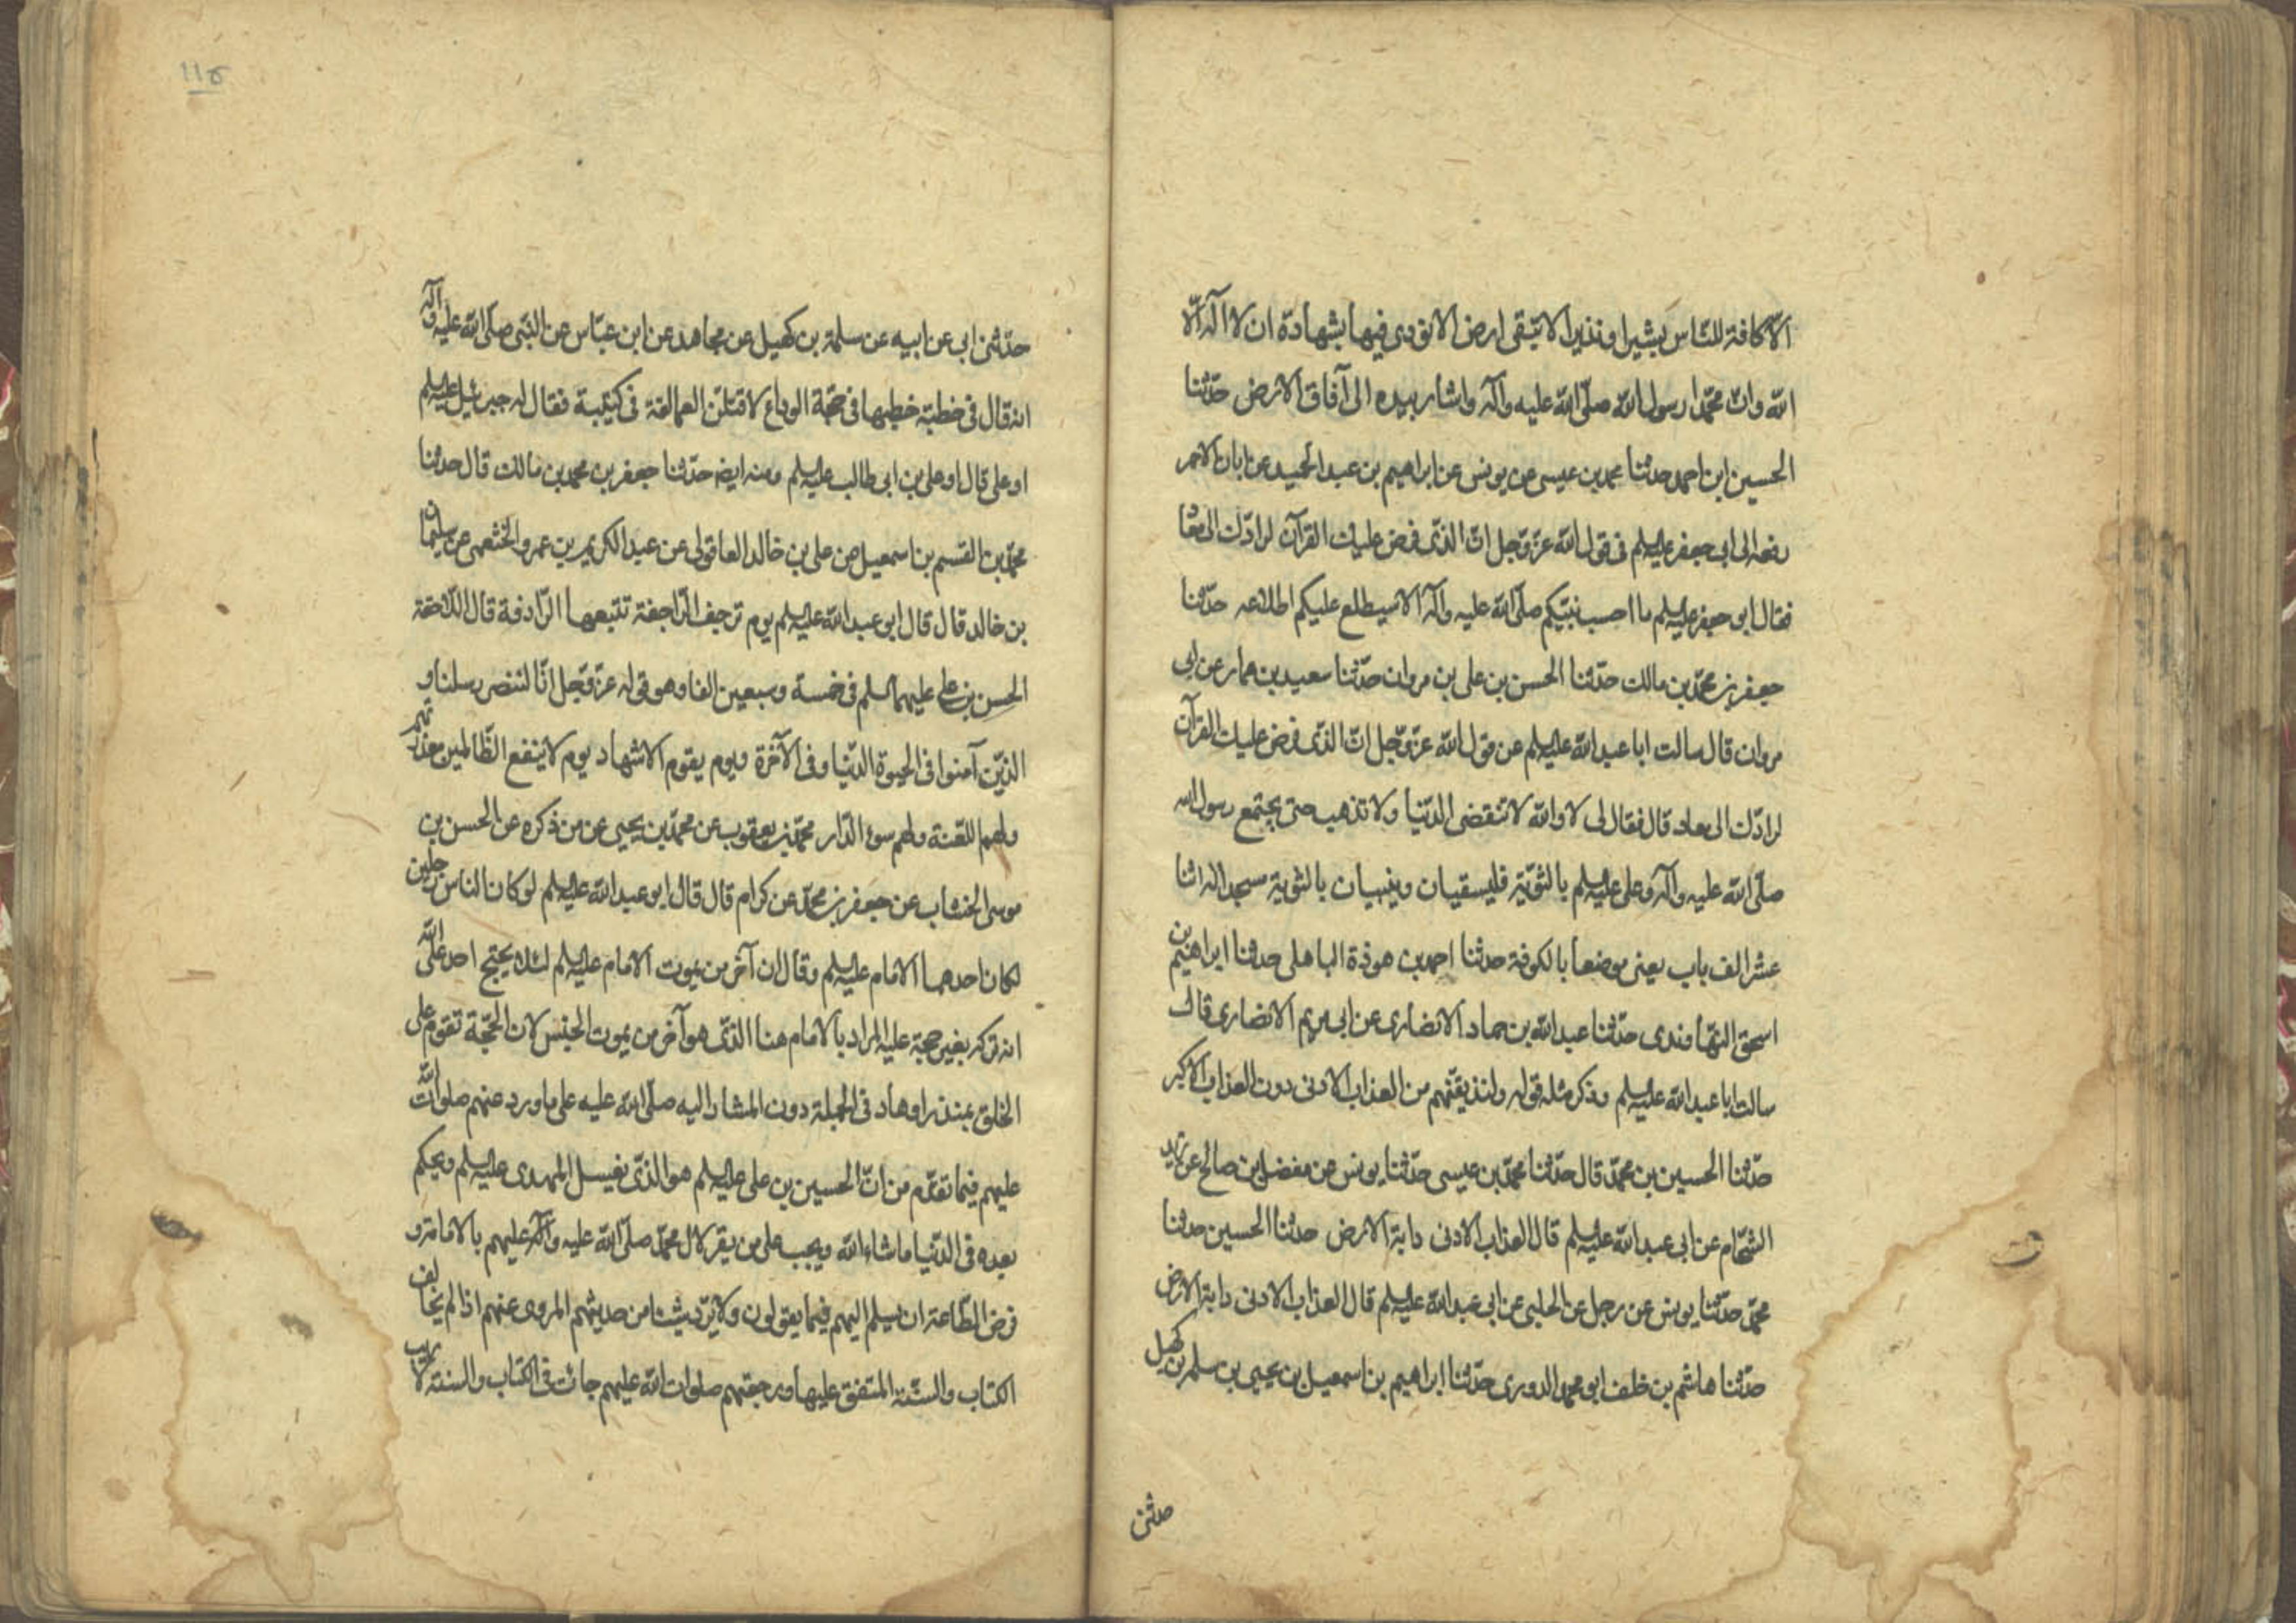 الّا كافة للنّاس بشيرا ونذيرا لا تبقى ارض الا نودى فيها بشهادة ان لا اله الّا
الله وانّ محمّدا رسول الله صلّى الله عليه وآله واشار بيده الى آفاق الارض حدّثنا
الحسين ابن احمد حدثنا محمد بن عيسى عن يونس عن ابراهيم بن عبد الحميد عن ابان الاحمر
رفعه الى ابى جعفر عليه السلم فى قول الله عزّ وجل انّ الذى فرض عليك القرآن لرادّك الى معاد
فقال ابو جعفر عليه السلم ما احسب نبيّكم صلّى الله عليه وآله الا سيطلع عليكم اطلاعه حدّثنا
جعفر بن محمّد بن مالك حدّثنا الحسن بن على بن مروان حدّثنا سعيد بن عمار عن ابى
مروان قال سالت ابا عبد الله عليه السلم عن قول الله عزّ وجل انّ الذى فرض عليك القرآن
لرادّك الى معاد قال فقال لى لا والله لا تنقضى الدّنيا ولا تذهب حتى يجتمع رسول الله
صلّى الله عليه وآله وعلى عليه السلم بالثويّة فليسقيان ويبنيان بالثوية مسجدا له اثنا
عشر الف باب يعنى موضعا بالكوفة حدثنا احمد بن هوذة الباهلى حدثنا ابراهيم بن
اسحق النهاوندى حدّثنا عبد الله بن حماد الانصارى عن ابى مريم الانصارى قال
سالت ابا عبد الله عليه السلم وذكر مثله قوله ولنذيقنّهم من العذاب الادنى دون العذاب الاكبر
حدّثنا الحسين بن محمّد قال حدّثنا محمّد بن عيسى حدّثنا يونس عن مفضل بن صالح عن زيد
الشحّام عن ابى عبد الله عليه السلم قال العذاب الادنى دابة الارض حدثنا الحسين حدثنا
محمّد حدّثنا يونس عن رجل عن الحلبى عن ابى عبد الله عليه السلم قال العذاب الادنى دابة الارض
حدّثنا هاشم بن خلف ابو محمد الدورى حدّثنا ابراهيم بن اسمعيل بن يحيى بن سلمة بن كهيل
حدثنى
١١٥
حدّثنى ابى عن ابيه عن سلمة بن كهيل عن مجاهد عن ابن عبّاس عن النبّى صلّى الله عليه وآله
انه قال فى خطبة خطبها فى حجّة الوداع لاقتلنّ العمالقة فى كتيبة فقال له جبرئيل عليه السلم
او على قال او على بن ابى طالب عليه السلم ومنه ايضا حدّثنا جعفر بن محمد بن مالك قال حدثنا
محمّد بن القسم بن اسمعيل عن على بن خالد العاقولى عن عبد الكريم بن عمرو الخثعمى عن سليمان
بن خالد قال قال ابو عبد الله عليه السلم يوم ترجف الرّاجفة تتبعها الرّادفة قال الرّاجفة
الحسين بن على عليهما السلم فى خمسة وسبعين الفا وهو قوله عزّ وجل انّا لننصر رسلنا و
الذين آمنوا فى الحيوة الدّنيا وفى الآخرة ويوم يقوم الاشهاد يوم لا ينفع الظّالمين معذرتهم
ولهم اللعنة ولهم سوء الدّار محمّد بن يعقوب عن محمّد بن يحيى عن من ذكره عن الحسن بن
موسى الخشاب عن جعفر بن محمّد عن كرام قال قال ابو عبد الله عليه السلم لو كان الناس رجلين
لكان احدهما الامام عليه السلم وقال ان آخر من يموت الامام عليه السلم لئلا يحتج احد على الله
انه تركه بغير حجة عليه المراد بالامام هنا الذى هو آخر من يموت الجنس لان الحجّة تقوم على
الخلق بمنذر او هاد فى الجملة دون المشار اليه صلّى الله عليه على ما ورد عنهم صلوات الله
عليهم فيما تقدّم من انّ الحسين بن على عليه السلم هو الذى يغسل المهدى عليه السلم ويحكم
بعده فى الدّنيا ماشاء الله ويجب على من يقر لآل محمّد صلّى الله عليه وآله وعليهم بالامامة و
فرض الطّاعة ان يسلم اليهم فيما يقولون ولا يردّ شيئا من حديثهم المروى عنهم اذا لم يخالف
الكتاب والسنّة المتفق عليها ورجعتهم صلوات الله عليهم جائت فى الكتاب والسنة لا